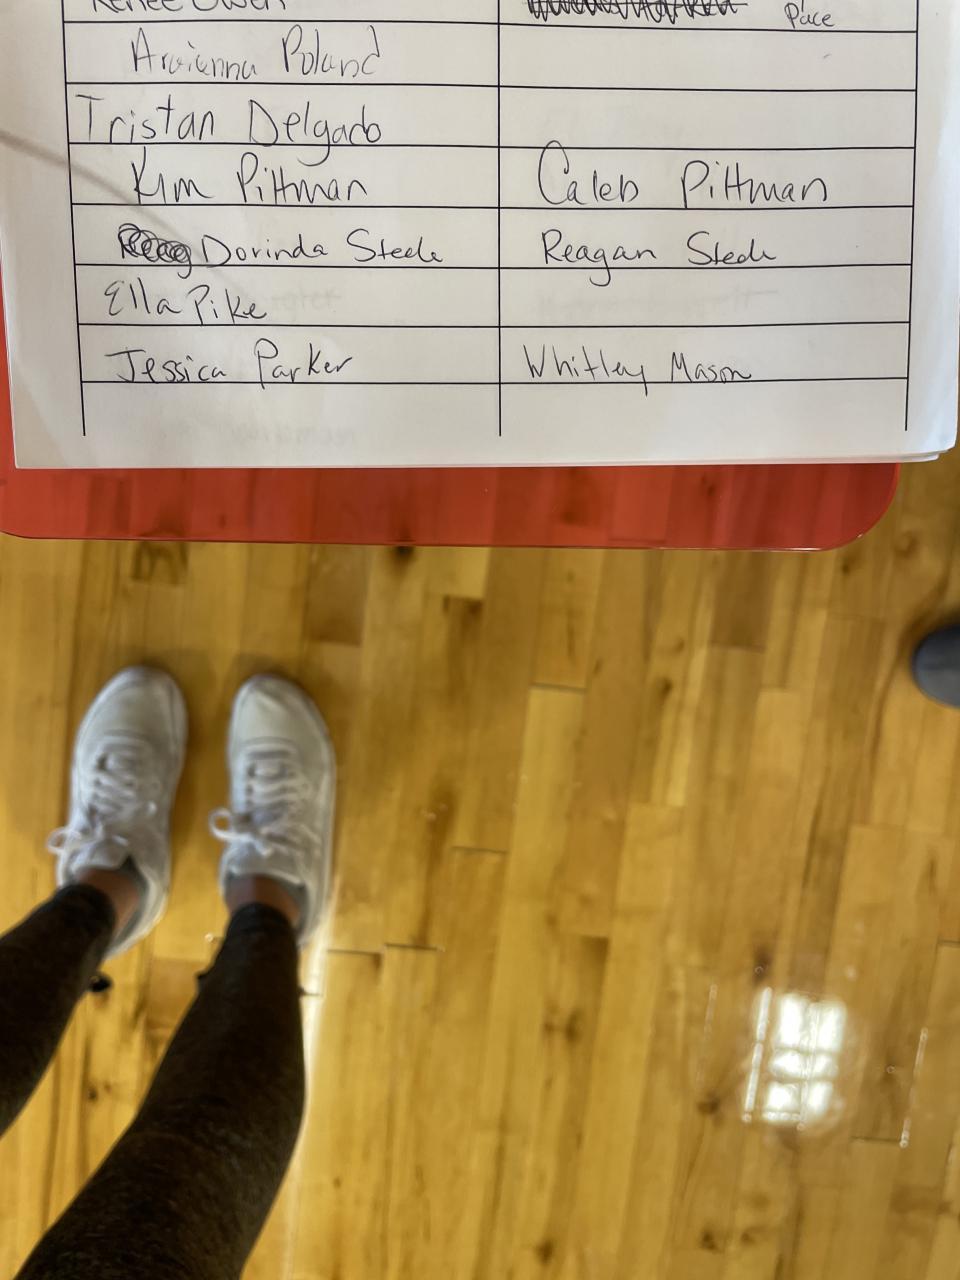 Renee Owen Pace
Arvianna Poland
Tristan Delgado
Kim Pittman Caleb Pittman
Dorinda Steele Reagan Steele
Ella Pike
Jessica Parker Whitley Mason